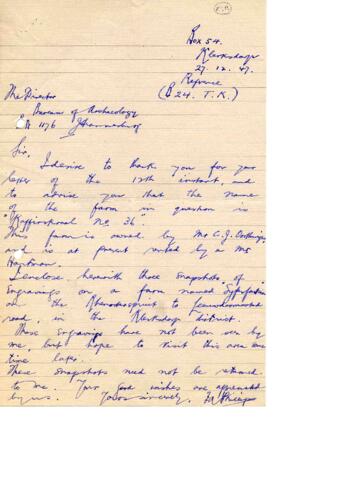 Box 54.
Klerksdorp
27. 12. 47.
Refrence
(B 24. T. K.)
The Director
Bureau of Archaeology
Box 1176 Johannesburg
Sir,
I desire to thank you for your
letter of the 12th instant, and
to advise you that the name
of the farm in question is
"Kaffirskraal No 36".
This farm is owned by Mr C. J.
and is at present rented by a Mr
I enclose herewith three snapshots of
engravings on a farm named
on the to
road, in the Klerksdorp district.
These engravings have not been seen by
me, but hope to visit this area some
time later.
These snapshots need not be returned
to me. Your good wishes are appreciated
by us. Yours sincerely,